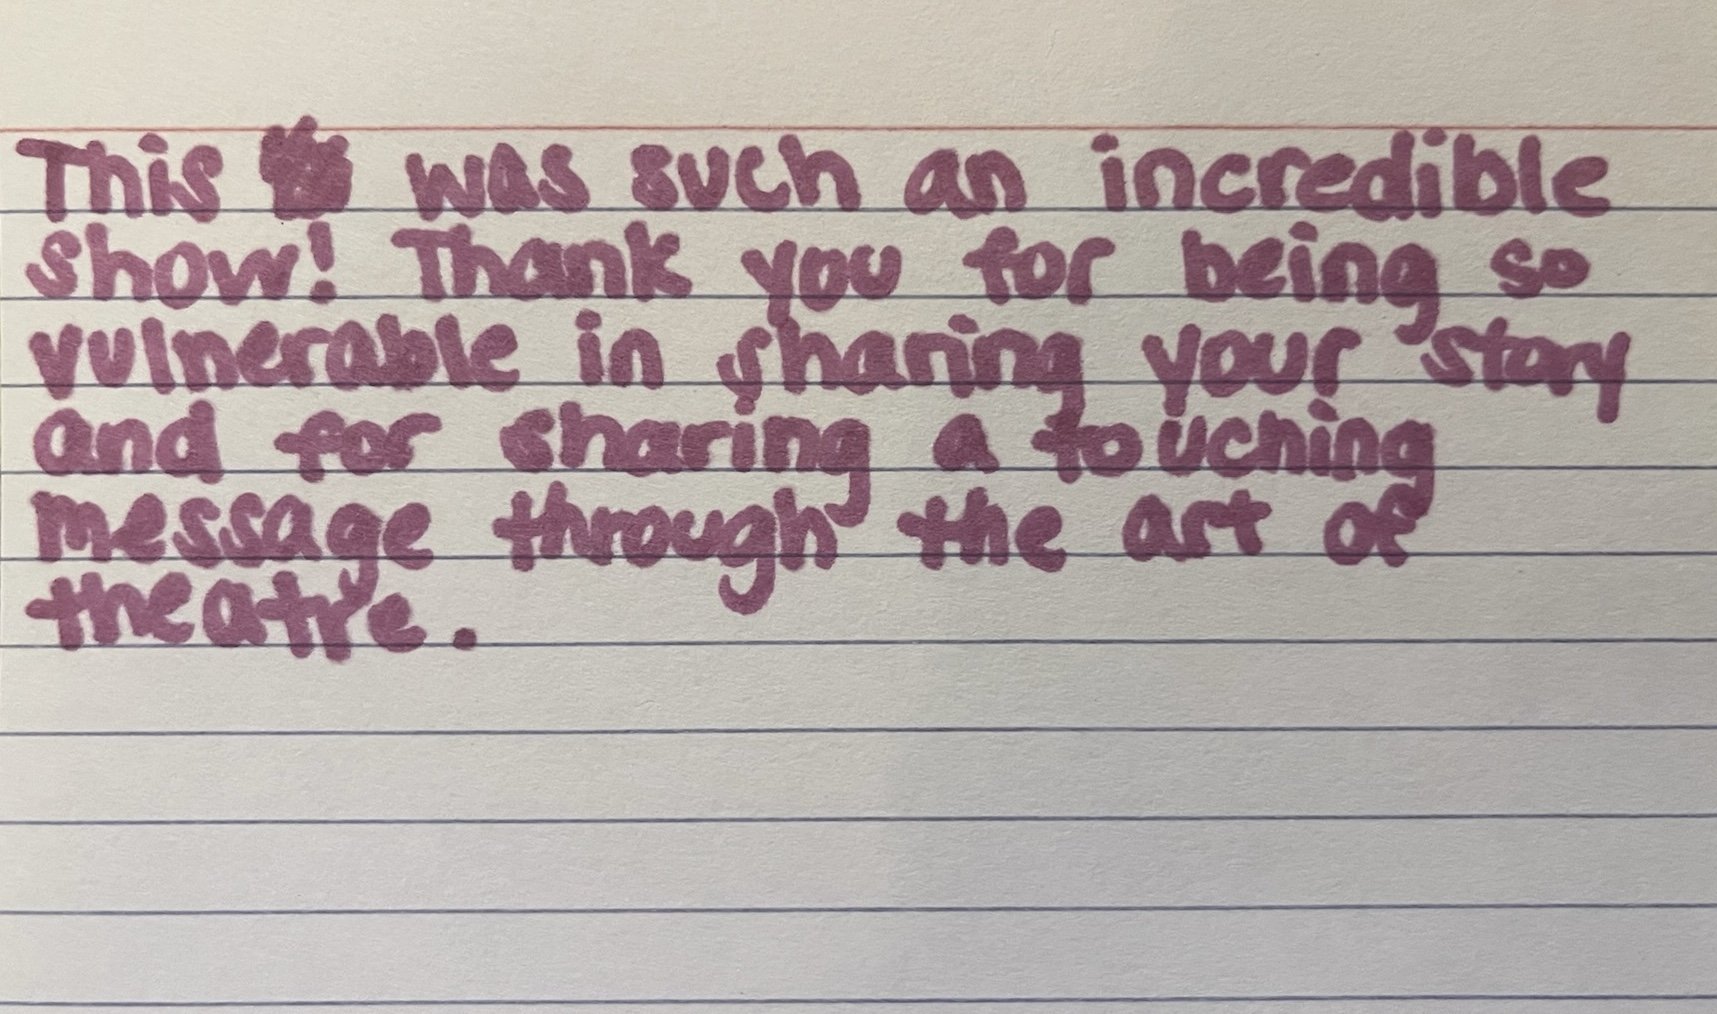 This was such an incredible
show! Thank you for being so
vulnerable in sharing your story
and for sharing a touching
message through the art of
theatre.